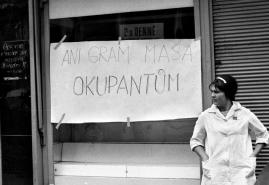 2x DENNĚ
ANI GRAM MASA
OKUPANTŮM